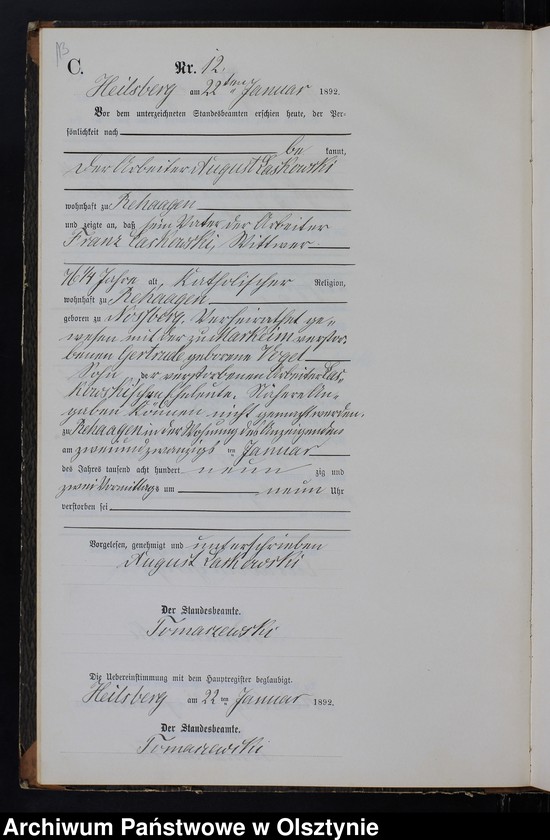 C. Nr. 12.
Heilsberg am 22ten Januar 1892.
Vor dem unterzeichneten Standesbeamten erschien heute, der Per-
sönlichkeit nach
be kannt,
der Arbeiter August Laskowski
wohnhaft zu Rehaagen
und zeigte an, daß sein Vater der Arbeiter
Franz Laskowski, Wittwer
76 1/4 Jahre alt, Katholischer Religion,
wohnhaft zu Rehaagen
geboren zu Nosberg, Verheirathet ge-
wesen mit der zu Markeim verstor-
benen Gertrude geborene Vogel
Sohn der verstorbenen Arbeiter Las-
kowskischen Eheleute. Nähere An-
gaben können nicht gemacht werden.
zu Rehaagen in der Wohnung des Anzeigenden
am zweiundzwanzigsten Januar
des Jahres tausend acht hundert neun zig und
zwei Vormittags um neun Uhr
verstorben sei
Vorgelesen, genehmigt und unterschrieben
August Laskowski
Der Standesbeamte.
Tomaszewski
Die Uebereinstimmung mit dem Hauptregister beglaubigt.
Heilsberg am 22ten Januar 1892.
Der Standesbeamte.
Tomaszewski
Archiwum Państwowe w Olsztynie